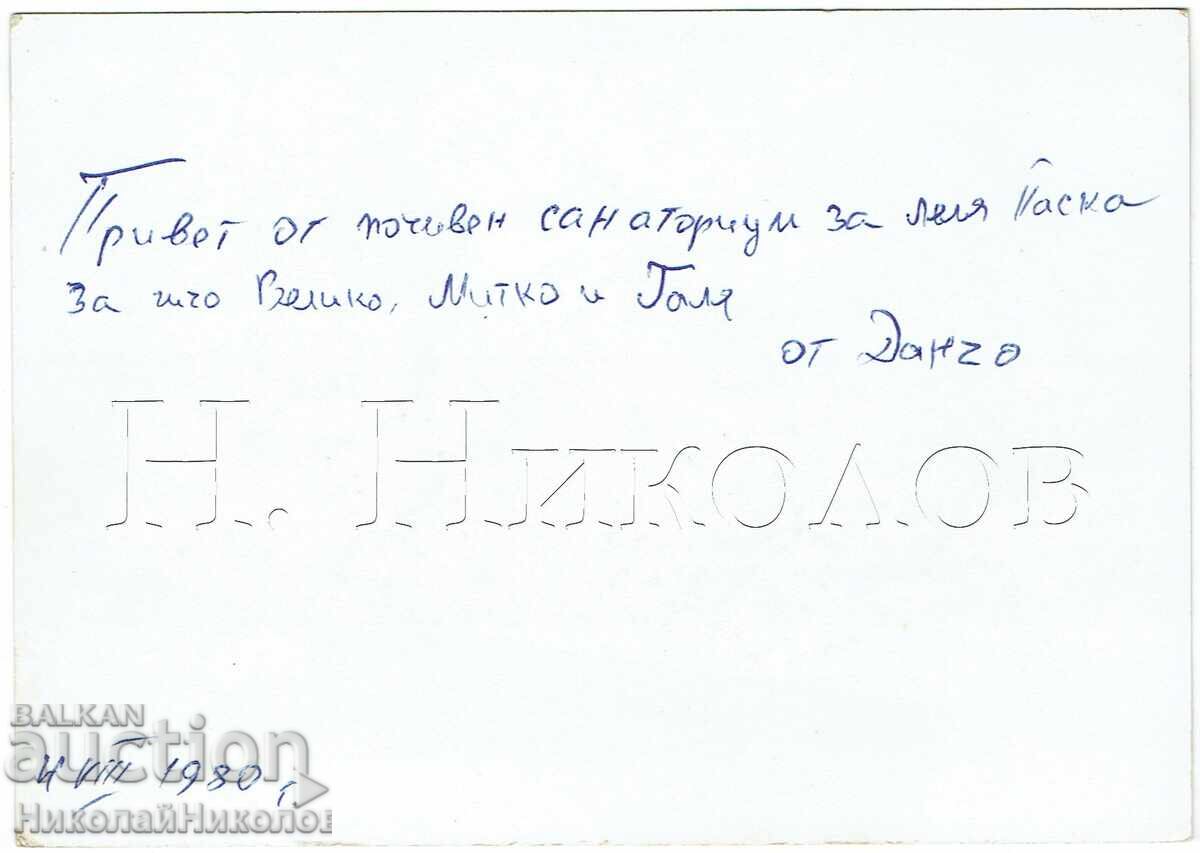 Привет от почивен санаториум за леля Паска
за чичо Велико, Митко и Галя
от Данчо
Н. Николов
BALKAN
auction
4 VIII 1980 г.
НиколайНиколов